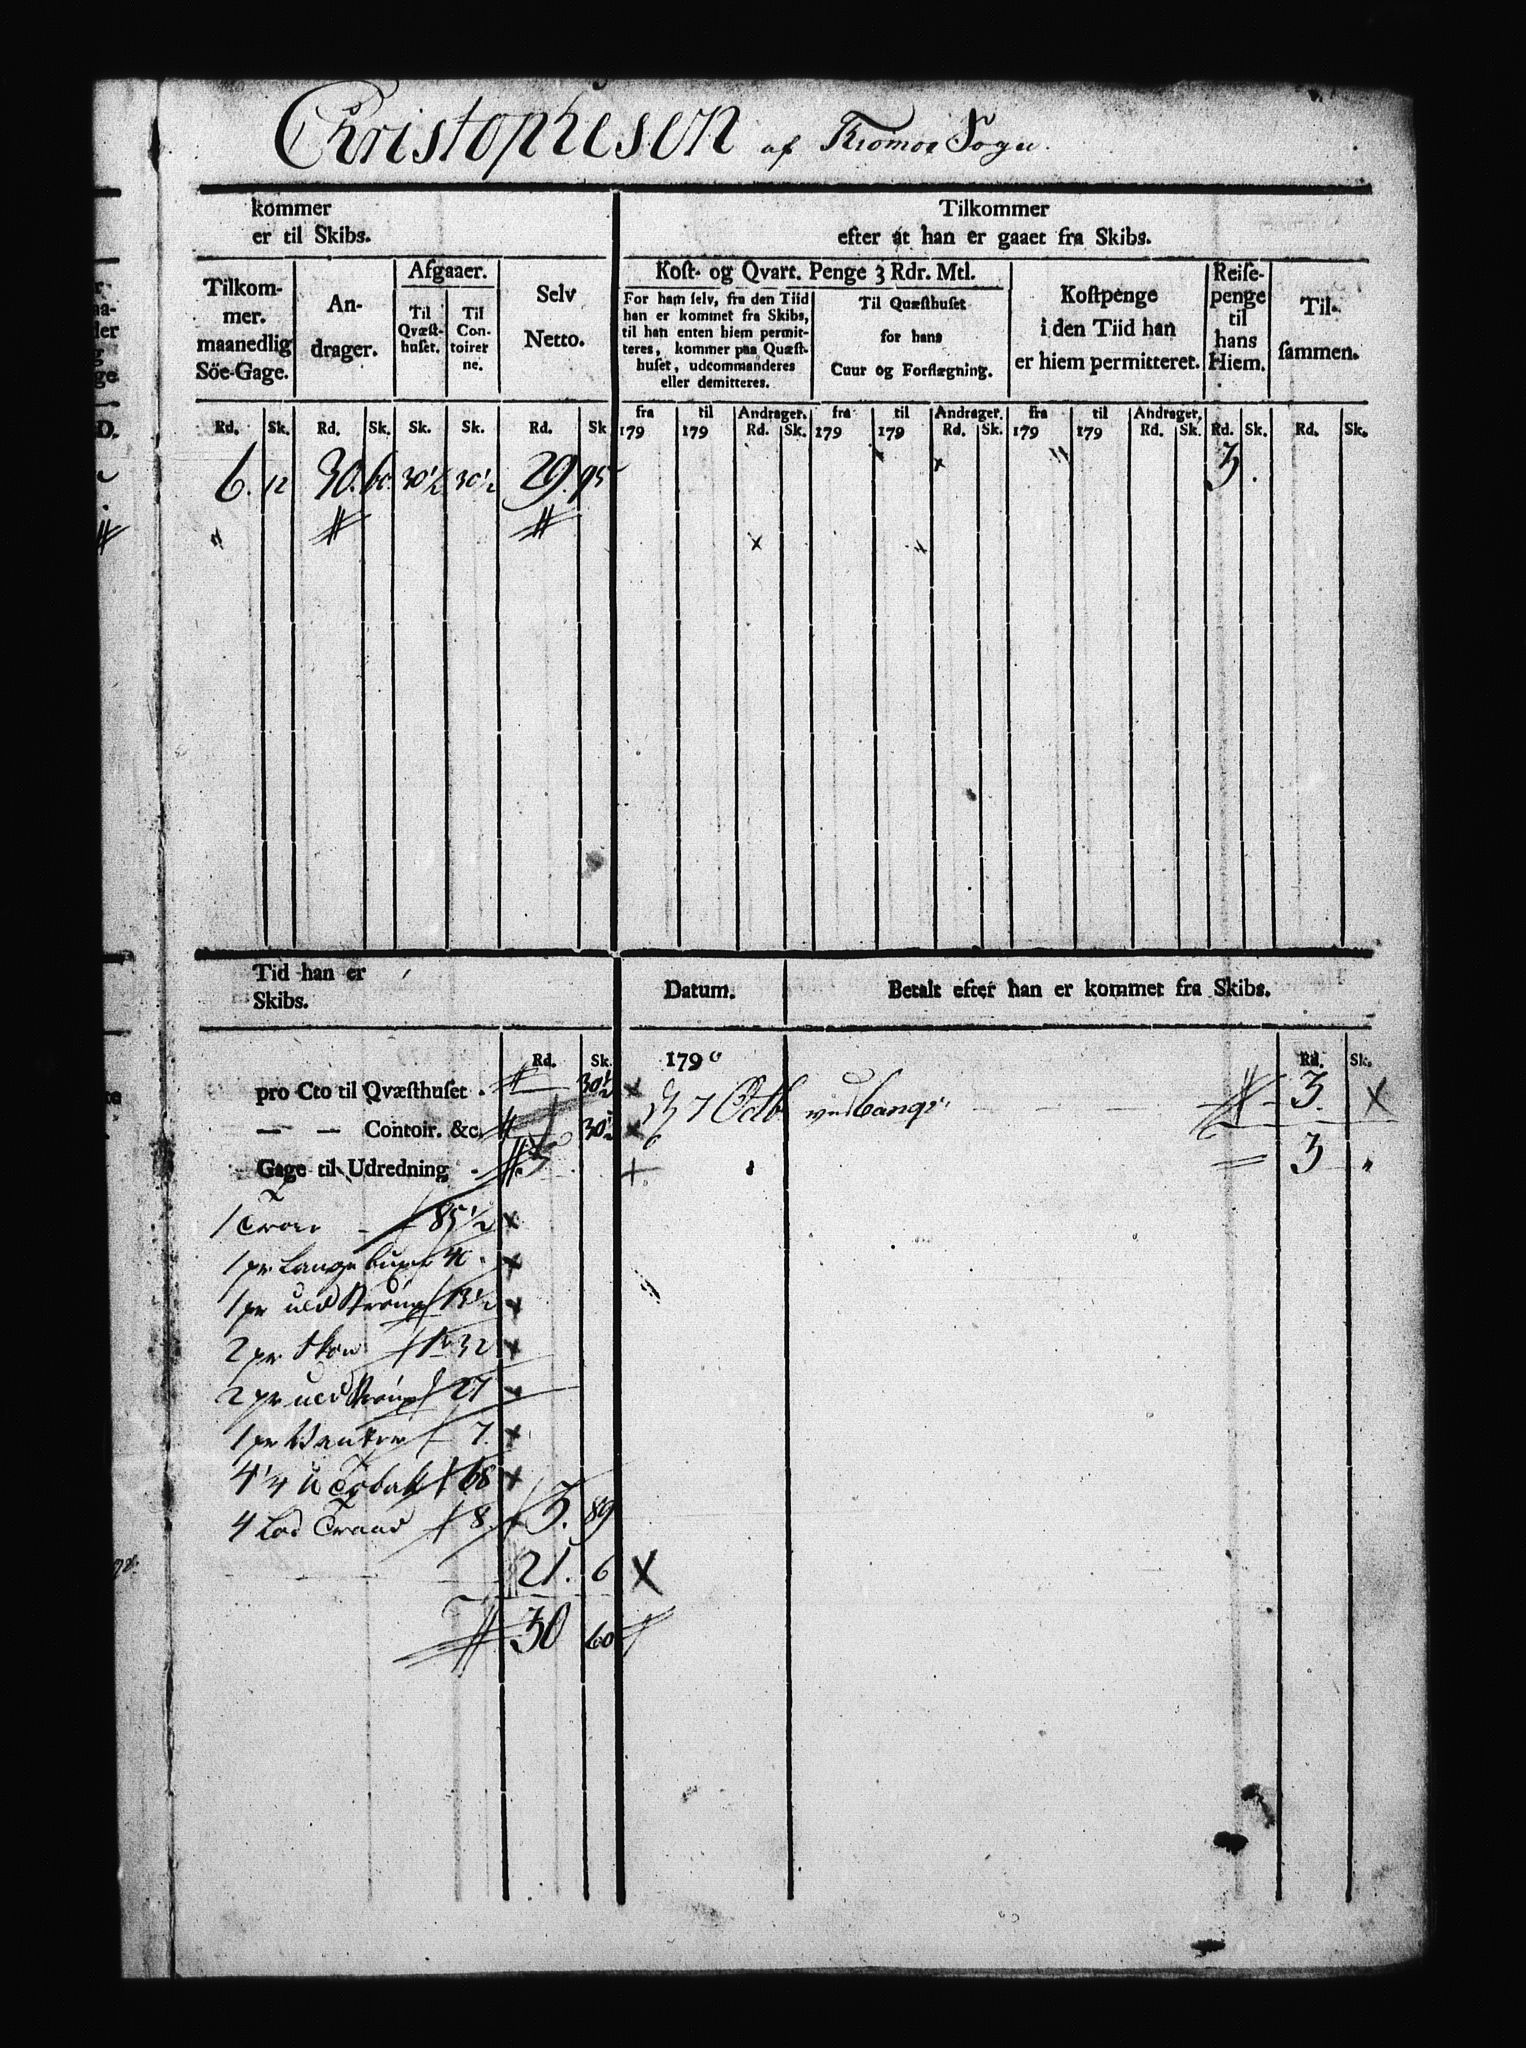 Christophesen af Tromoe Sogn.
kommer
er til Skibs.
Tilkommer
efter at han er gaaet fra Skibs.
Tilkom-
mer.
maanedlig
Söe-Gage.
An-
drager.
Afgaaer.
Til
Qvæst-
huset.
Til
Con-
toirer
ne.
Selv
Netto.
Kost- og Qvart. Penge 3 Rdr. Mtl.
For ham selv, fra den Tiid
han er kommet fra Skibs,
til han enten hiem permit-
teres, kommer paa Quæst-
huset, udcommanderes
eller demitteres.
Til Quæsthuset
for hans
Cuur og Forflægning.
Kostpenge
i den Tiid han
er hiem permitteret.
Reise-
penge
til
hans
Hiem.
Til-
sammen.
fra til Andrager. fra til Andrager. fra til Andrager.
Rd. Sk. Rd. Sk. Sk. Sk. Rd. Sk. 179 179 Rd. Sk. 179 179 Rd. Sk. 179 179 Rd. Sk. Rd. Sk. Rd. Sk.
6. 12 30. 60. 30½ 30½ 29. 95 3.
Tid han er
Skibs.
Datum.
Betalt efter han er kommet fra Skibs.
Rd. Sk. 1790 Rd. Sk.
pro Cto til Qvæsthuset . 30½
— — Contoir. &c. 30½
7 Octb 3.
Gage til Udredning . 5
3
1 Troie 85½
1 pr Lange buxer 40.
1 pr uld Strömp 13½
2 pr Skoe 1 32
2 pr uld Strömp 27
1 pr Vanter 7.
4¼ ℔ Tobak 68
4 Lod Traad 8 3. 89
21. 6
30 60